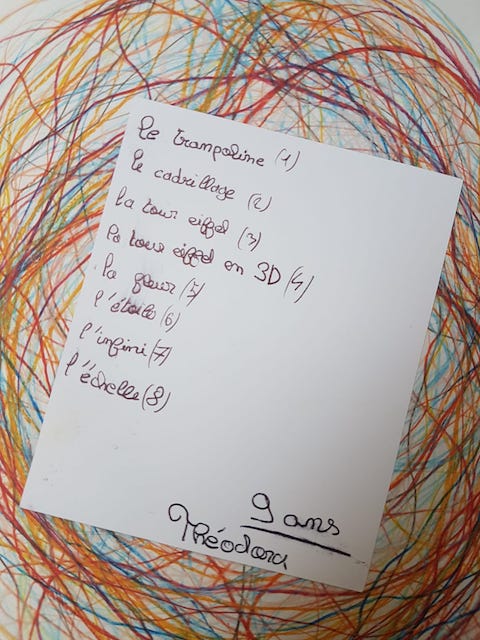 le trampoline (1)
le cadrillage (2)
la tour eiffel (3)
la tour eiffel en 3D (4)
la fleur (5)
l'étoile (6)
l'infini (7)
l'échelle (8)
9 ans
Théodora